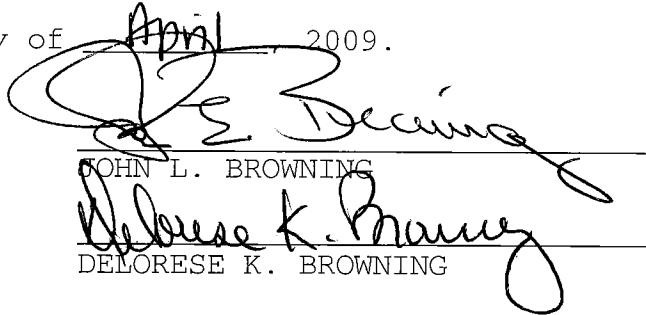 y of April, 2009.
JOHN L. BROWNING
Delorese K. Browning
DELORESE K. BROWNING